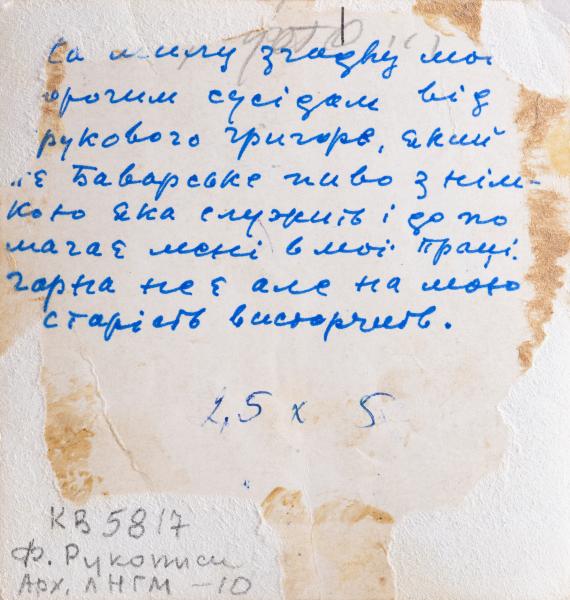 На милу згадку мої
орогим сусідам від
рукового Григоре, який
п'є Баварське пиво з нім-
кою яка служить і допо
магає мені в мої праці.
гарна не є але на мою
старість вистарчить.
2,5 x 5
КВ 5817
Ф. Рукописи
Арх. ЛНГМ - 10